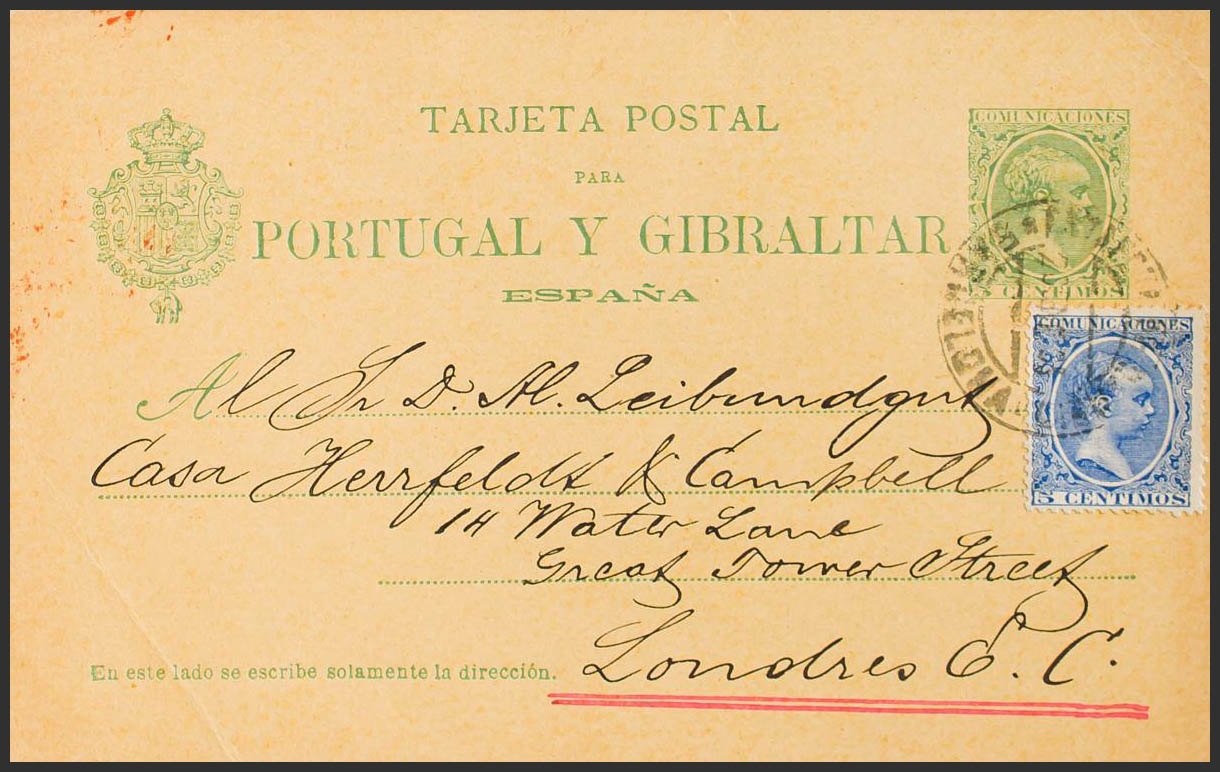 TARJETA POSTAL
PARA
PORTUGAL Y GIBRALTAR
ESPAÑA
COMUNICACIONES
5 CENTIMOS
COMUNICACIONES
5 CENTIMOS
Al Sr D. Al. Leibundgut
Casa Herrfeldt & Campbell
14 Water Lane
Great Tower Street
Londres E. C.
En este lado se escribe solamente la dirección.